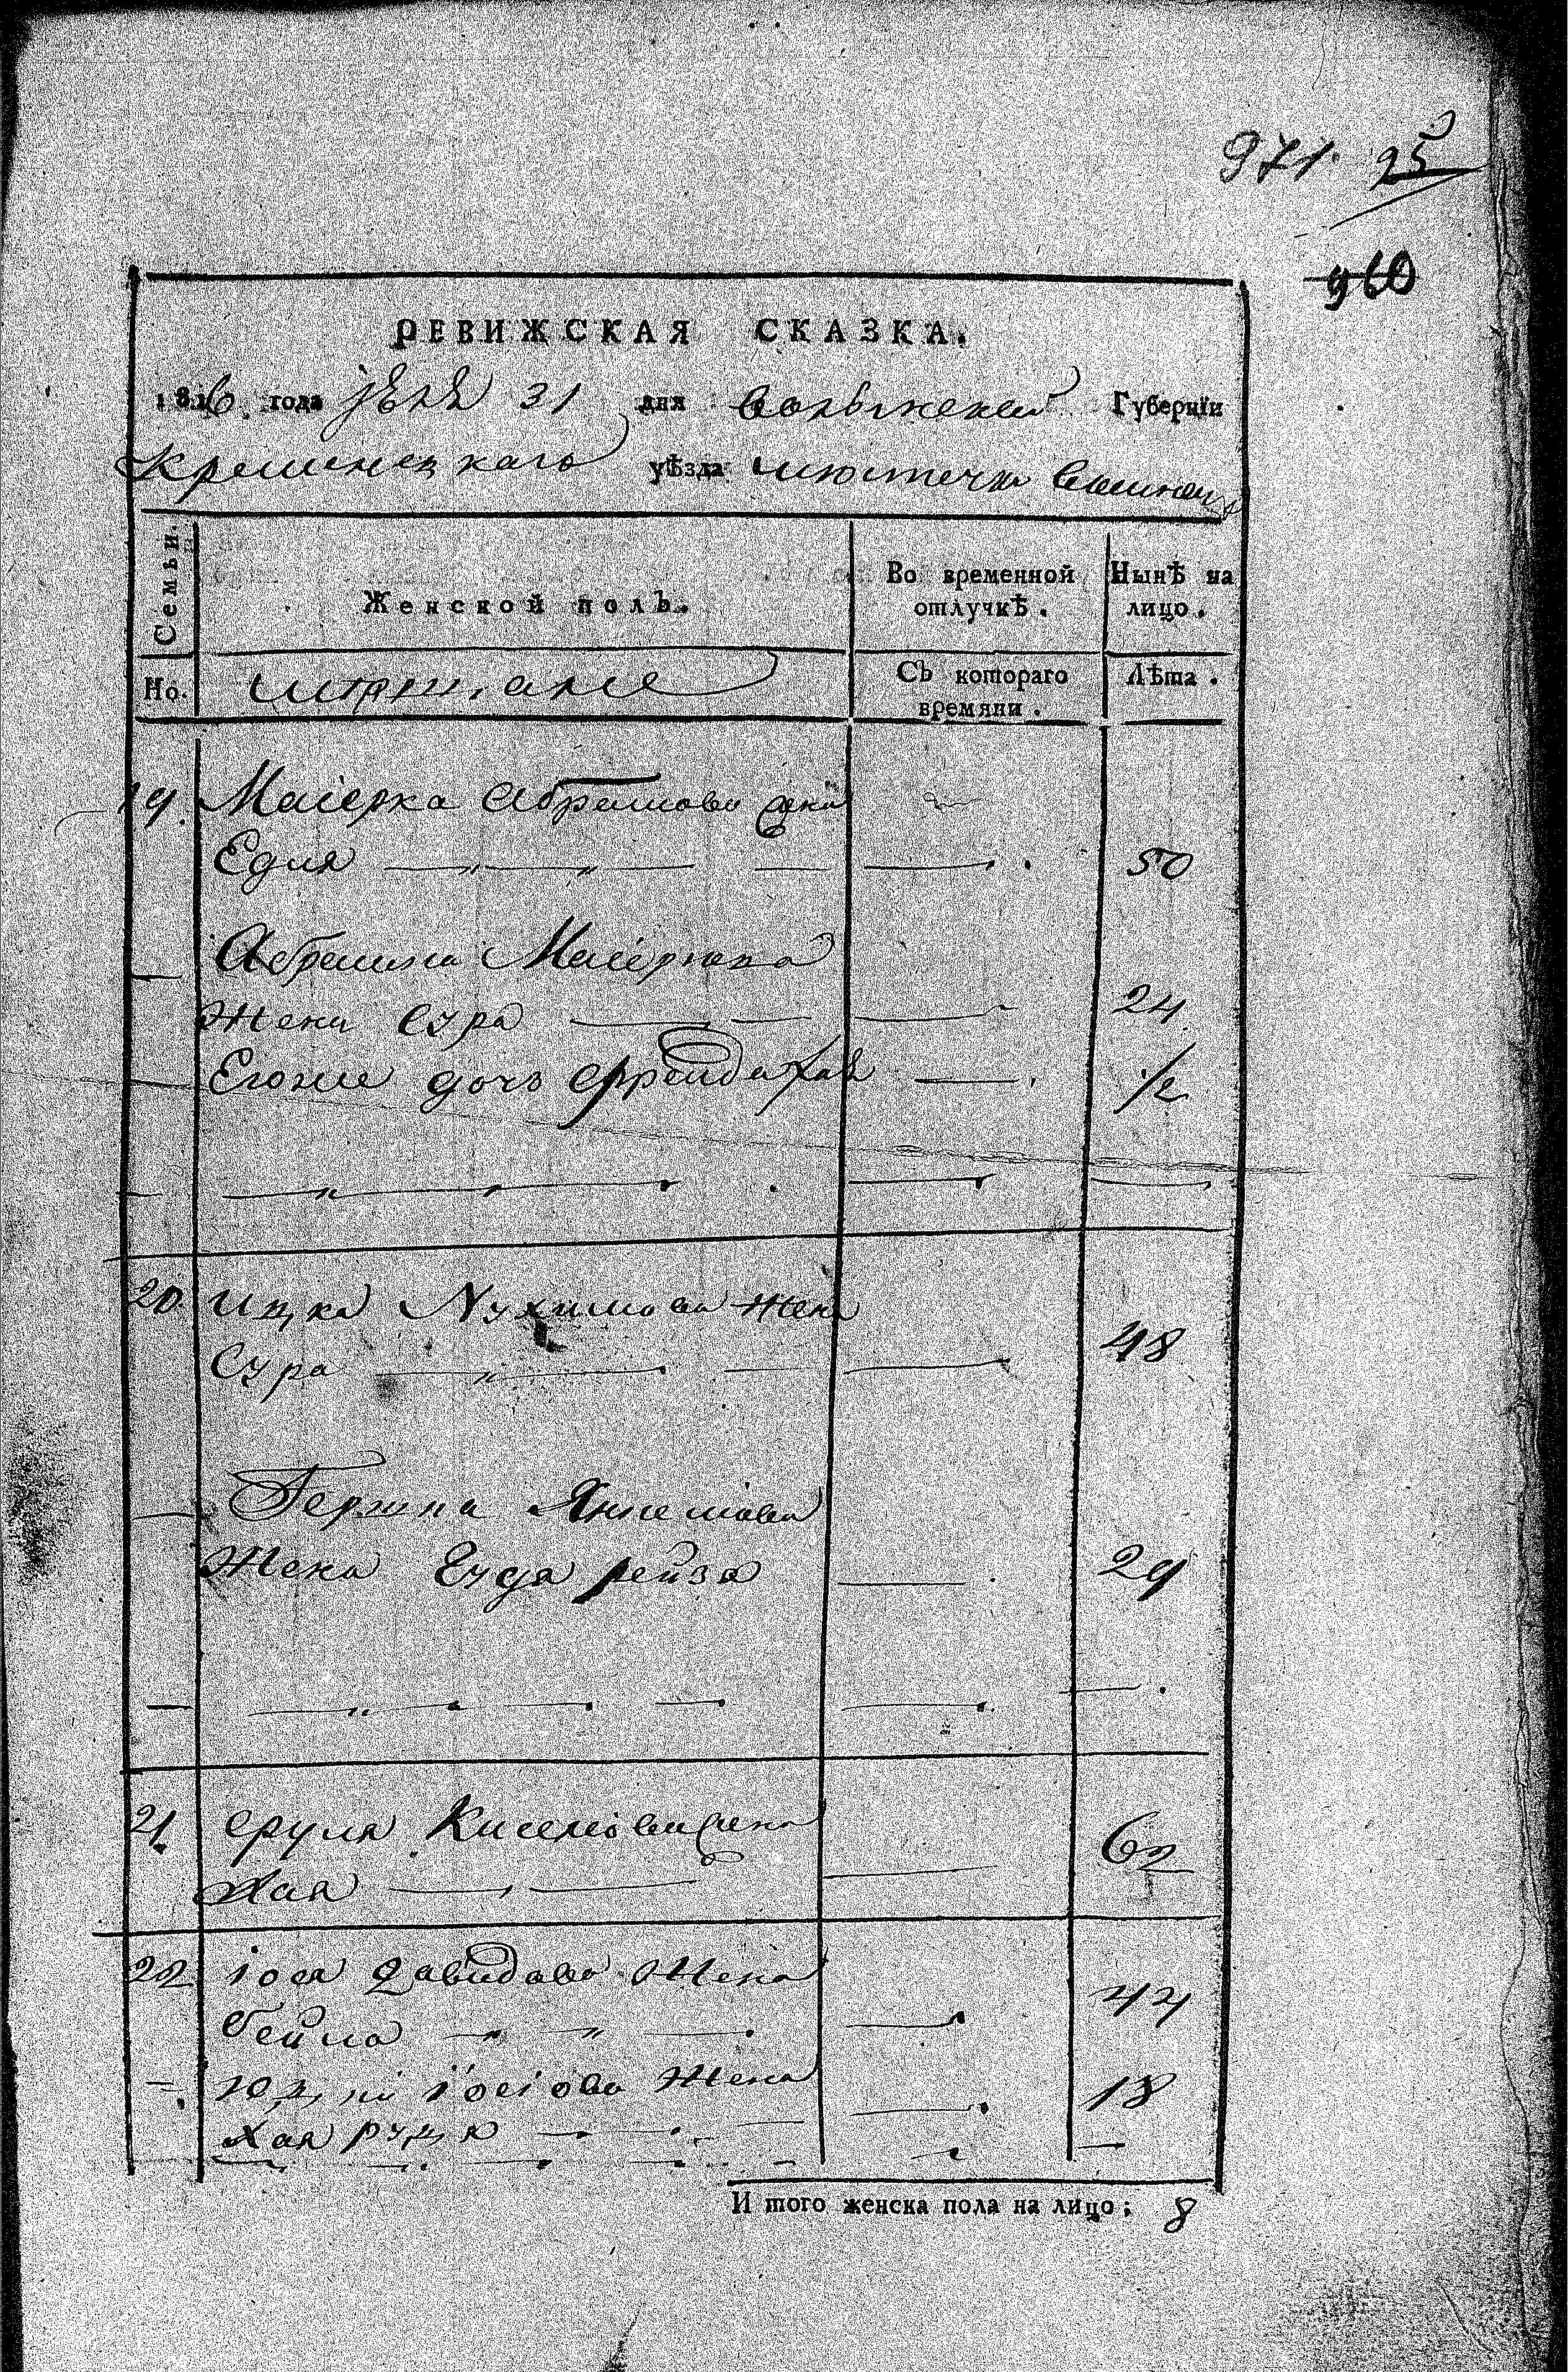 971. 25
960
РЕВИЖСКАЯ СКАЗКА.
1816 года 31 дня Волынской Губернїи
Кременецкаго уѣзда местечка
Семьи.
Женской полъ.
Во временной отлучкѣ.
Нынѣ на лицо.
No.
мещане
Съ котораго времяни.
Лѣта.
19. Маіерка Абрамова жена
Едля 50
Абрамка Маіеркова
Жена Сура 24
Егоже дочь Фрейда Хая 1/2
20. Ицка Нухимова жена
Сура 48
Гершка
Жена Рейзя 29
21. Сруля жена
Хая 62
22 Іося Давидова Жена
Бейла 44
Іосіова Жена 18
Хая
И того женска пола на лицо; 8